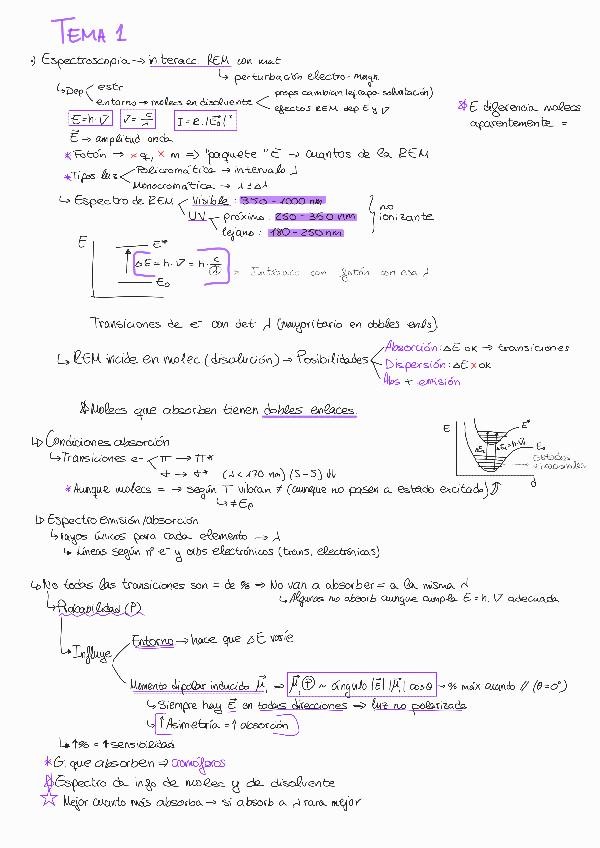 TEMA 1
Espectroscopia → interacc REM con mat
↳ perturbación electro-magn.
↳ Dep
estr
entorno → molecs en disolvente
props cambian (ej capa solvatación)
efectos REM dep E y ν
E = h·ν
* E diferencia molecs
aparentemente =
E → amplitud onda
* Fotón → x q, x m => "paquete" E → cuantos de la REM
* Tipos luz
Policromática → intervalo λ
Monocromática → λ ± Δλ
↳ Espectro de REM
Visible: 350-1000 nm
UV
próximo: 250-350 nm
lejano: 180-250 nm
no
ionizante
E
E*
ΔE = h·ν = h·c/λ
E₀
= Interacc con fotón con esa λ
Transiciones de e⁻ con det λ (mayoritario en dobles enls)
↳ REM incide en molec (disolución) → Posibilidades
Absorción: ΔE ok → transiciones
Dispersión: ΔE x ok
Abs + emisión
Molecs que absorben tienen dobles enlaces.
↳ Condiciones absorción
↳ Transiciones e⁻
π → π*
(λ < 170 nm)
E
E*
E₀
estados
vibracionales
d
* Aunque molecs = → según T vibran ≠ (aunque no pasen a estado excitado)
↳ ≠ E₀
Espectro emisión/absorción
↳ rayos únicos para cada elemento → λ
↳ Líneas según nº e⁻ y orbs electrónicos (trans. electrónicas)
↳ No todas las transiciones son = de % → No van a absorber = a la misma λ
↳ Algunas no absorb aunque cumpla E = h·ν adecuada
↳ Probabilidad (P)
↳ Influye
Entorno → hace que ΔE varíe
Momento dipolar inducido μ⃗ᵢ → μ⃗ᵢ (P) ~ ángulo |E⃗| |μ⃗ᵢ| cosθ → % máx cuando // (θ=0°)
↳ Siempre hay E⃗ en todas direcciones → luz no polarizada
↳ ↑ Asimetría = ↑ absorción
↳ ↑% = ↑ sensibilidad
* G. que absorben → cromóforos
Espectro da info de molec y de disolvente
☆ Mejor cuanto más absorba → si absorb a λ rara mejor